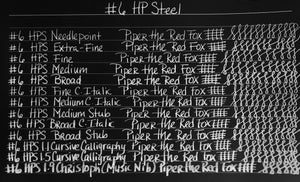 #6 HP Steel
#6 HPS Needlepoint Piper the Red Fox
#6 HPS Extra-Fine Piper the Red Fox
#6 HPS Fine Piper the Red Fox
#6 HPS Medium Piper the Red Fox
#6 HPS Broad Piper the Red Fox
#6 HPS Fine C. Italic Piper the Red Fox
#6 HPS Medium C Italic Piper the Red Fox
#6 HPS Medium Stub Piper the Red Fox
#6 HPS Broad C. Italic Piper the Red Fox
#6 HPS Broad Stub Piper the Red Fox
#6 HPS 1.1 Cursive Calligraphy Piper the Red Fox
#6 HPS 1.5 Cursive Calligraphy Piper the Red Fox
#6 HPS 1.9 Christoph (Music Nib) Piper the Red Fox